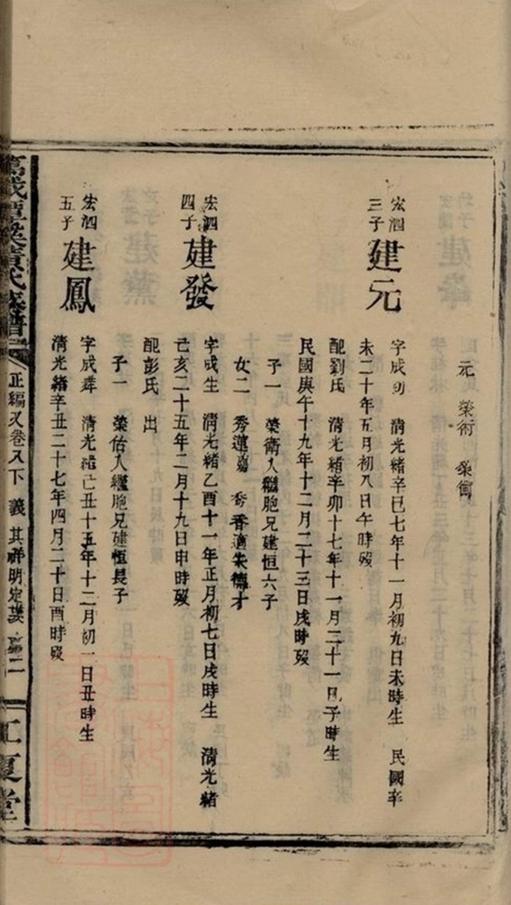 元 榮術
宏泗三子 建元
字成 清光緒辛巳七年十一月初九日未時生 民國辛
未二十年五月初八日午時歿
配劉氏 清光緒辛卯十七年十一月二十一日子時生
民國庚午十九年十二月二十三日戌時歿
子一 榮衛入繼胞兄建恒六子
女二 秀蓮 秀香適朱德才
宏泗四子 建發
字成生 清光緒乙酉十一年正月初七日戌時生 清光緒
己亥二十五年二月十九日申時歿
配彭氏 出
子一 榮佑入繼胞兄建恒長子
宏泗五子 建鳳
字成 清光緒己丑十五年十二月初一日丑時生
清光緒辛丑二十七年四月二十日酉時歿
萬載 氏族譜
正編 卷 下 義 其祥明定
江夏堂